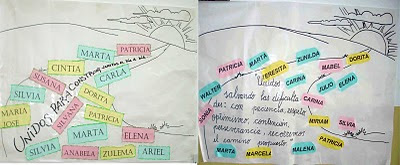 MARTA
PATRICIA
CINTIA
CARLA
SUSANA
SILVIA
DORITA
PATRICIA
MARIA
JOSE
SILVANA
MARTA
ELENA
SILVIA
ANABELA
ZULEMA
ARIEL
UNIDOS PARA CONSTRUIR
PATRICIA
MARTA
TERESITA
ZUNILDA
MABEL
DORITA
WALTER
SONIA
CARINA
JULIO
ELENA
CARINA
MIRIAM
SILVIA
PATRICIA
MARTA
MARCELA
MALENA
Unidos
salvando las dificulta
des: con paciencia, respeto
optimismo, contención,
perseverancia, recorremos
el camino propuesto